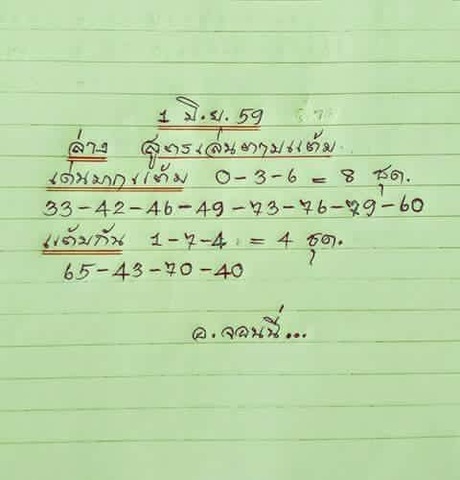 1 มิ.ย. 59
ล่าง สูตรเล่นตามแต้ม
เด่นมาแต้ม 0-3-6 = 8 ชุด.
33-42-46-49-73-76-79-60
แต้มกัน 1-7-4 = 4 ชุด.
65-43-70-40
อ.จอนนี่...